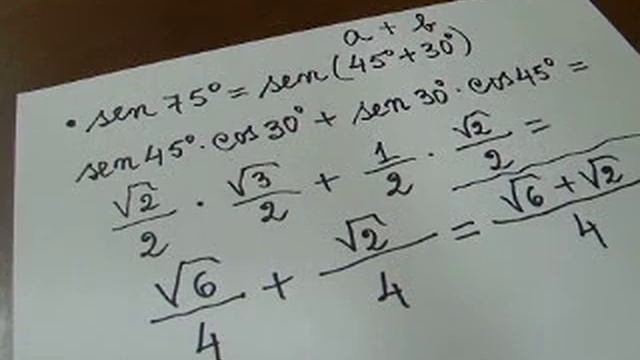 a + b
• sen 75° = sen (45° + 30°)
sen 45° · cos 30° + sen 30° · cos 45° =
√2/2 · √3/2 + 1/2 · √2/2 =
√6/4 + √2/4 = √6 + √2/4